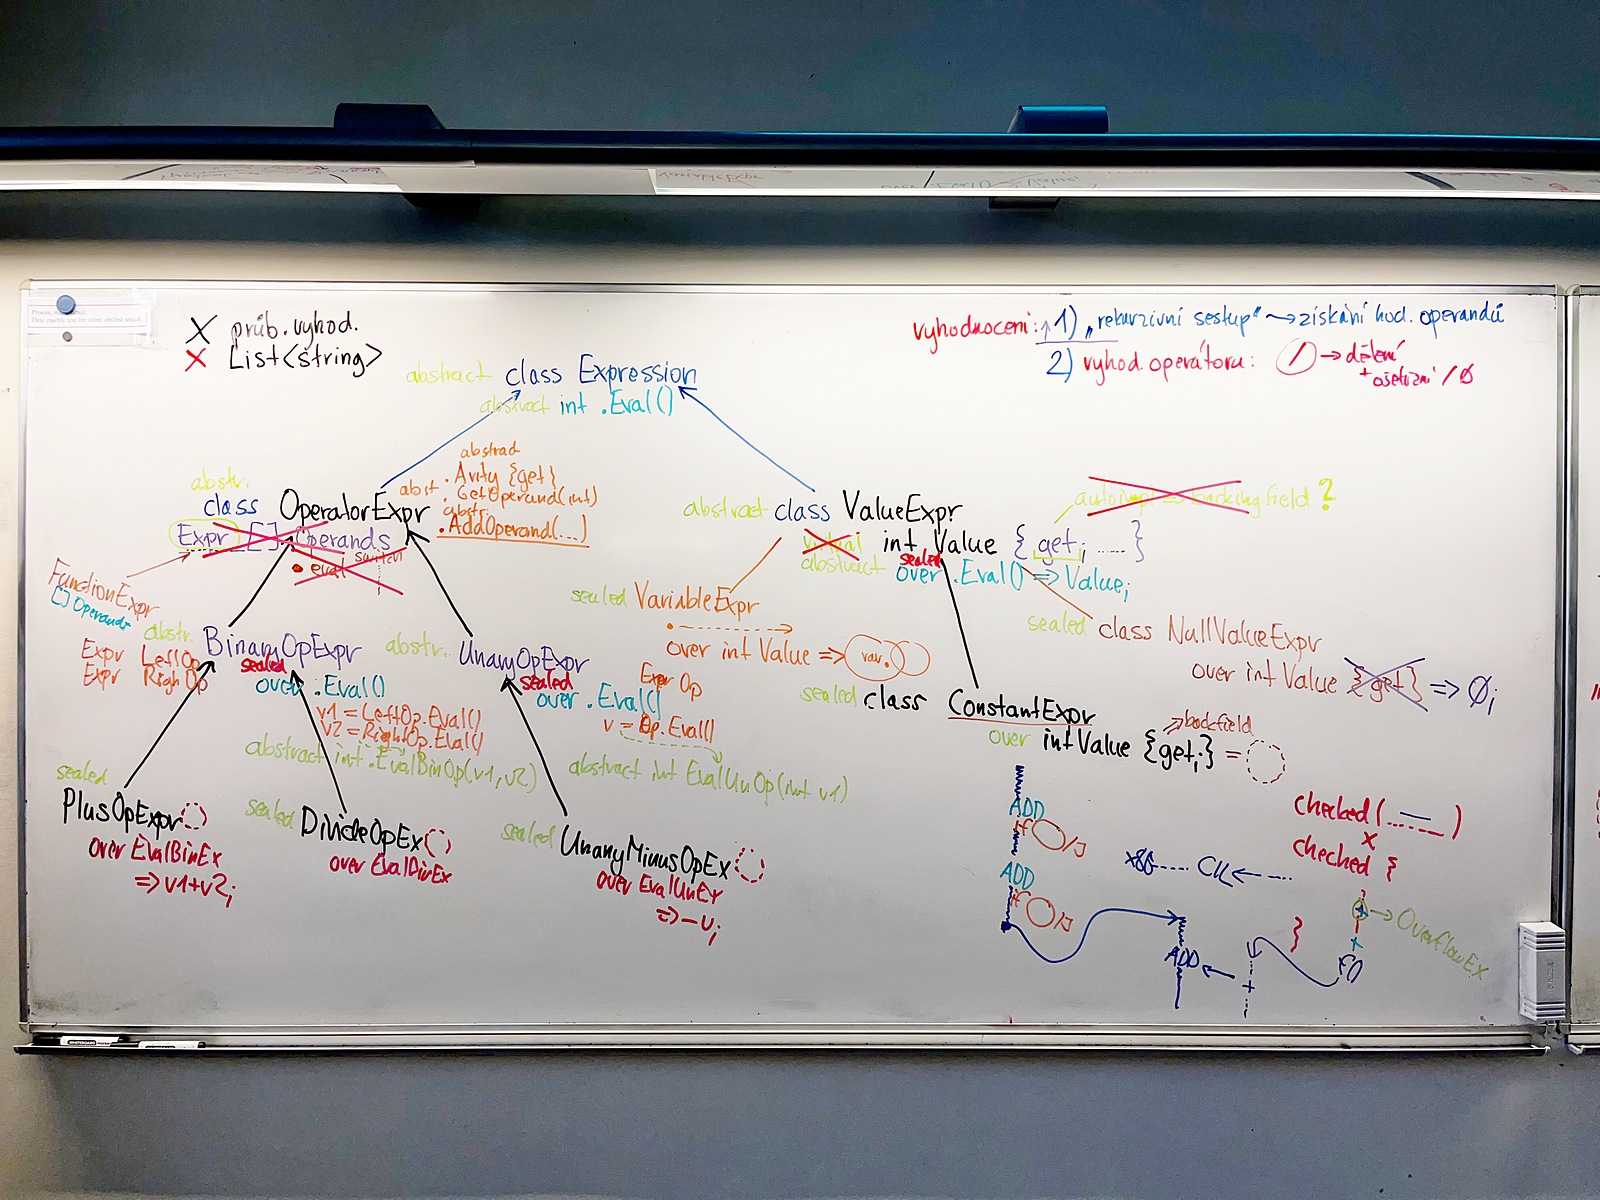 X průb. vyhod.
X List<string>
vyhodnocení: 1) „rekurzivní sestup" → získání hod. operandů
2) vyhod. operátoru: / → dělení
+ ošetření / 0
abstract class Expression
abstract int .Eval()
abstr.
class OperatorExpr
Expr [] Operands
switch
• eval
abstract
. Arity {get}
abst . GetOperand(int)
abstr.
. AddOperand(...)
abstract class ValueExpr
virtual int Value { get; ..... }
abstract
sealed
over .Eval() => Value;
auto impl => backing field ?
FunctionExpr
[] Operands
abstr. BinaryOpExpr
Expr LeftOp
Expr RighOp
sealed
over .Eval()
v1 = LeftOp.Eval()
v2 = RightOp.Eval()
abstract int .EvalBinOp(v1, v2)
abstr. UnaryOpExpr
Expr Op
sealed
over .Eval()
v = Op.Eval()
abstract int EvalUnOp(int v1)
sealed VariableExpr
over int Value => var.
sealed class NullValueExpr
over int Value {get} => 0;
sealed class ConstantExpr
backfield
over int Value {get;} =
sealed
PlusOpExpr
over EvalBinEx
=> v1+v2;
sealed DivideOpEx
over EvalBinEx
sealed UnaryMinusOpEx
over EvalUnEx
=> -v;
ADD
if O/J
ADD
if O/J
ADD
checked( )
x
checked {
}
+ → OverflowEx
+
f()
+
WHITEBOARD